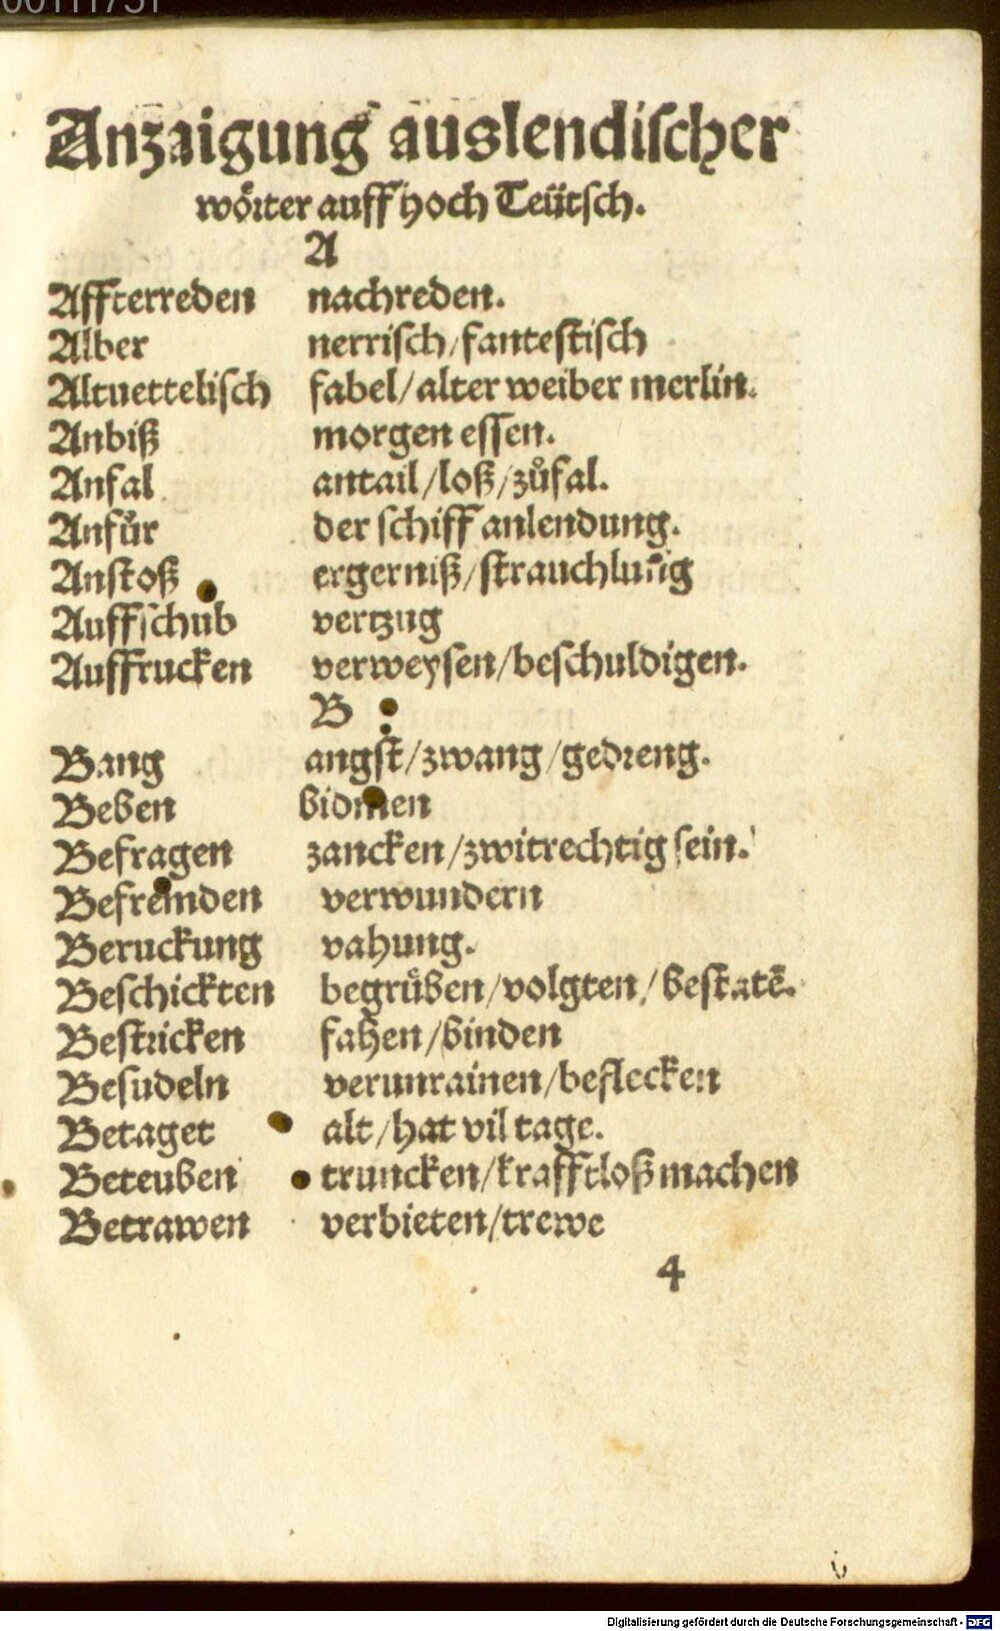 00111731
Anzaigung auslendiſcher
woͤrter auff hoch Teütſch.
A
Affterreden nachreden.
Alber nerriſch/fanteſtiſch
Altuettelisch fabel/alter weiber merlin.
Anbiß morgen eſſen.
Anfal antail/loß/zůfal.
Anfůr der ſchiff anlendung.
Anſtoß ergerniß/ſtrauchlung
Auffſchub vertzug
Auffrucken verweyſen/beſchuldigen.
B
Bang angſt/zwang/gedreng.
Beben bidmen
Befragen zancken/zwitrechtig ſein.
Befremden verwundern
Beruckung vahung.
Beſchickten begrůben/volgten/beſtatē.
Beſtricken fahen/binden
Beſudeln verunrainen/beflecken
Betaget alt/hat vil tage.
Beteuben truncken/krafftloß machen
Betrawen verbieten/trewe
4
Digitalisierung gefördert durch die Deutsche Forschungsgemeinschaft - DFG